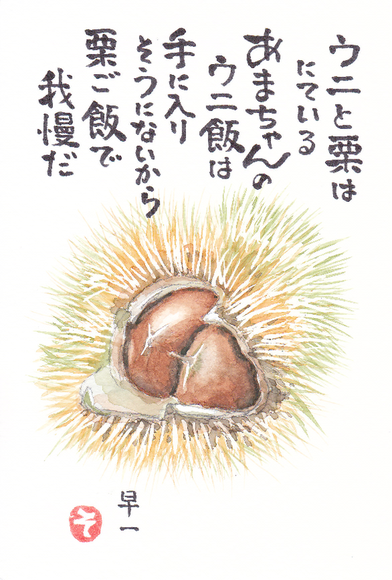 ウニと栗は
にている
あまちゃんの
ウニ飯は
手に入り
そうにないから
栗ご飯で
我慢だ
早一
そ